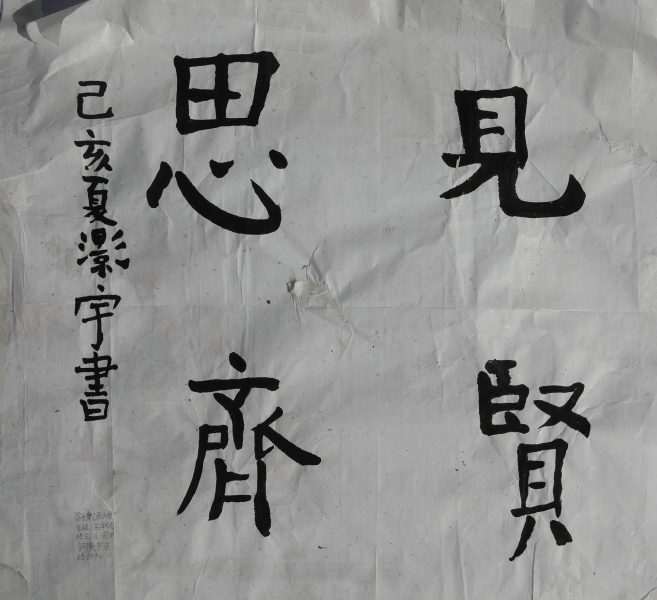 見賢
思齊
己亥夏瀠宇書